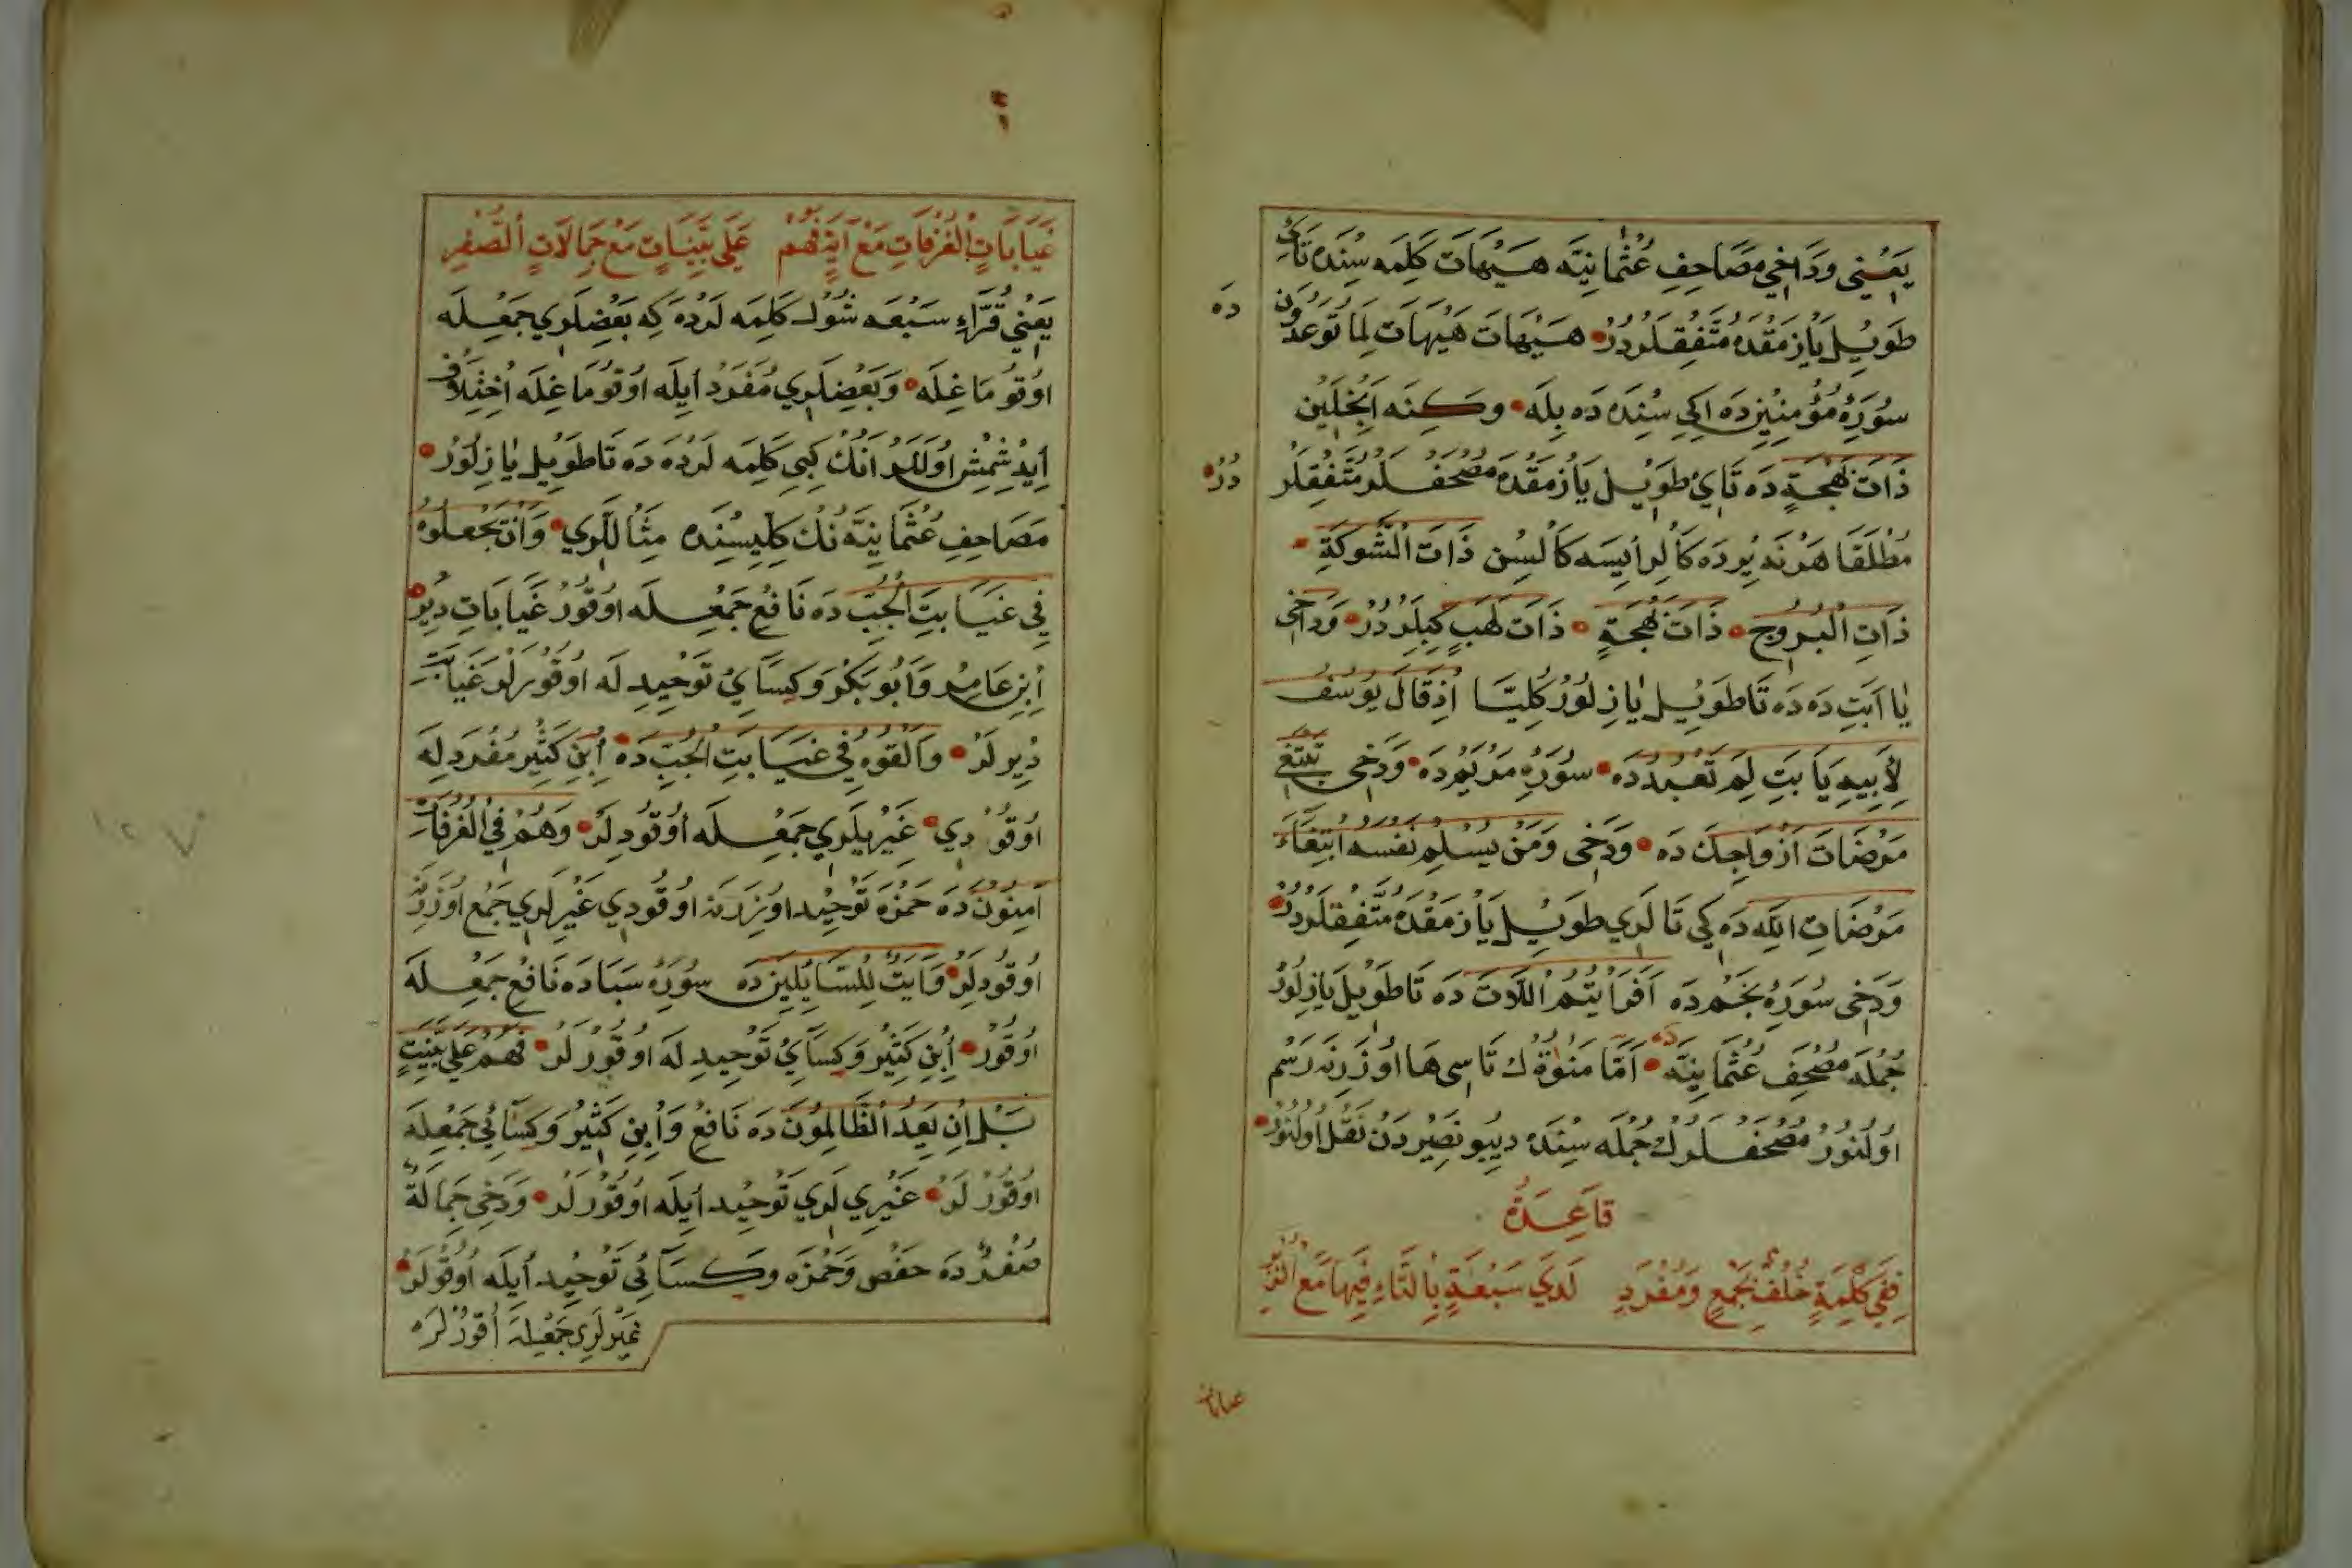 يَعْنِي وَدَاخِي مَصَاحِفِ عُثْمَانِيَّه هَيْهَاتَ كَلِمَه سِنْدَه تَاىِ
طَوِيلْ يَازْمَقْدَه مُتَّفِقْلَرْدُرْ هَيْهَاتَ هَيْهَاتَ لِمَا تُوعَدُونَ
دَه
سُورَهِٔ مُؤْمِنِينْ دَه اِكِي سِنْدَه دَه بِلَه وَكِنَه اَنْجِلَيِنْ
ذَاتَ بَهْجَةٍ دَه تَايِ طَوِيلْ يَازْمَقْدَه مُصْحَفْلَرْ مُتَّفِقْلَرْ
دُرْ
مُطْلَقَا هَرْ نَه يِرْدَه كَالُر اِيسَه كَالْسُنْ ذَاتَ الشَّوْكَةِ
ذَاتِ الْبُرُوجِ ذَاتَ بَهْجَةٍ ذَاتَ لَهَبٍ كِبِلَرْدُرْ وَدَاخِي
يَا اَبَتِ دَه دَه تَا طَوِيلْ يَازِلُورْ كُلِّيًّا اِذْ قَالَ يُوسُفُ
لِأَبِيهِ يَا بَتِ لِمَ تَعْبُدُ دَه سُورَهِٔ مَرْيَمْ دَه وَدَخِي تَبْتَغِي
مَرْضَاتَ اَزْوَاجِكَ دَه وَدَخِي وَمَنْ يُسْلِمْ نَفْسَه ابْتِغَاءَ
مَرْضَاتِ اللّٰه دَه كِي تَالَرِي طَوِيلْ يَازْمَقْدَه مُتَّفِقْلَرْدُرْ
وَدَخِي سُورَهِٔ نَجْمْ دَه اَفَرَأَيْتُمُ اللَّاتَ دَه تَا طَوِيلْ يَازِلُورْ
جُمْلَه مُصْحَفِ عُثْمَانِيَّه دَه اَمَّا مَنَوٰةَ نُكْ تَاسِي هَا اُوزَرِنَه رَسْمْ
اُولُنُورْ مُصْحَفْلَرُكْ جُمْلَه سِنْدَه دِيبُو نَصِيرْدَنْ نَقْلْ اُولُنُورْ
قَاعِدَةٌ
فَفِي كَلْمَةٍ خُلْفٌ بِجَمْعٍ وَمُفْرَدٍ لَدَي سَبْعَةٍ بِالتَّاءِ فِيهَا مَعَ
غَيَابَاتٍ الْغُرُفَاتِ مَعْ آيَةٍ فَهُمْ عَلَى بَيِّنَاتٍ مَعْ جِمَالَاتٍ الصُّفْرِ
يَعْنِي قُرَّاءِ سَبْعَه شُولْ كَلِمَه لَرْدَه كِه بَعْضِلَرِي جَمْعِلَه
اوُقُومَاغِلَه وَبَعْضِلَرِي مُفْرَدْ اِيلَه اوُقُومَاغِلَه اِخْتِلَافْ
اِيدِشْمِشْ اوُلَلَرْ انُكْ كِبِي كَلِمَه لَرْدَه دَه تَا طَوِيلْ يَازِلُورْ
مَصَاحِفِ عُثْمَانِيَّه نُكْ كُلِّيسِنْدَه مِثَالَلَرِي وَاَنْ يَجْعَلُوهُ
فِي غَيَابَتِ الْجُبِّ دَه نَافِعْ جَمْعِلَه اوُقُورْ غَيَابَاتِ دِيُو
اِبْنِ عَامِرْ وَاَبُو بَكْرْ وَكِسَائِي تَوْحِيدِلَه اوُقُورْلَرْ غَيَابَتِ
دِيرلَرْ وَاَلْقُوهُ فِي غَيَابَتِ الْجُبِّ دَه اِبْنِ كَثِيرْ مُفْرَدِلَه
اوُقُودِي غَيْرِيلَرِي جَمْعِلَه اوُقُودِلَرْ وَهُمْ فِي الْغُرُفَاتِ
اٰمِنُونْ دَه حَمْزَه تَوْحِيدْ اوُزَرِنَه اوُقُودِي غَيْرِلَرِي جَمْعْ اوُزَرِنَه
اوُقُودِلَرْ وَاٰيَتٌ لِلسَّائِلِينَ دَه سُورَهِٔ سَبَادَه نَافِعْ جَمْعِلَه
اوُقُورْ اِبْنِ كَثِيرْ وَكِسَائِي تَوْحِيدِلَه اوُقُورْلَرْ فَهُمْ عَلَى بَيِّنَتٍ
بَلْ اِنْ يَعِدُ الظَّالِمُونَ دَه نَافِعْ وَاِبْنِ كَثِيرْ وَكِسَائِي جَمْعِلَه
اوُقُورْلَرْ غَيْرِي لَرِي تَوْحِيدْ اِيلَه اوُقُورْلَرْ وَدَخِي جِمَالَةٌ
صُفْرٌ دَه حَفْصْ وَحَمْزَه وَكِسَائِي تَوْحِيدْ اِيلَه اوُقُولَرْ
غَيْرْلَرِي جَمْعِيلَه اُقُورْلَرَه